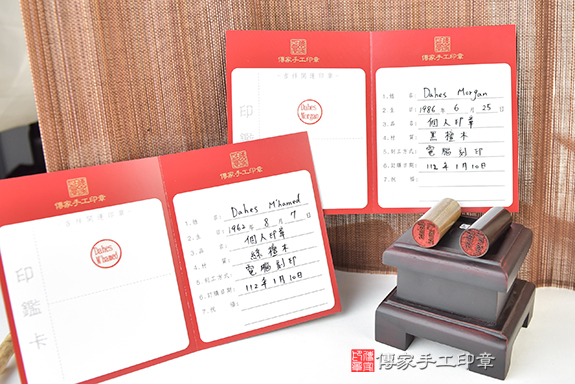 傳家手工印章
吉祥開運印章
印鑑
Dahes
Morgan
1.姓 名: Dahes Morgan
2.生 日: 1986年6月25日
3.品 名: 個人印章
4.材 質: 黑檀木
5.刻工方式: 電腦刻印
6.訂購日期: 112年1月10日
7.附 項:
傳家手工印章
吉祥開運印章
印鑑卡
Dahes
M'hamed
1.姓 名: Dahes M'hamed
2.生 日: 1962年8月7日
3.品 名: 個人印章
4.材 質: 綠檀木
5.刻工方式: 電腦刻印
6.訂購日期: 112年1月10日
7.附 項:
傳家手工印章